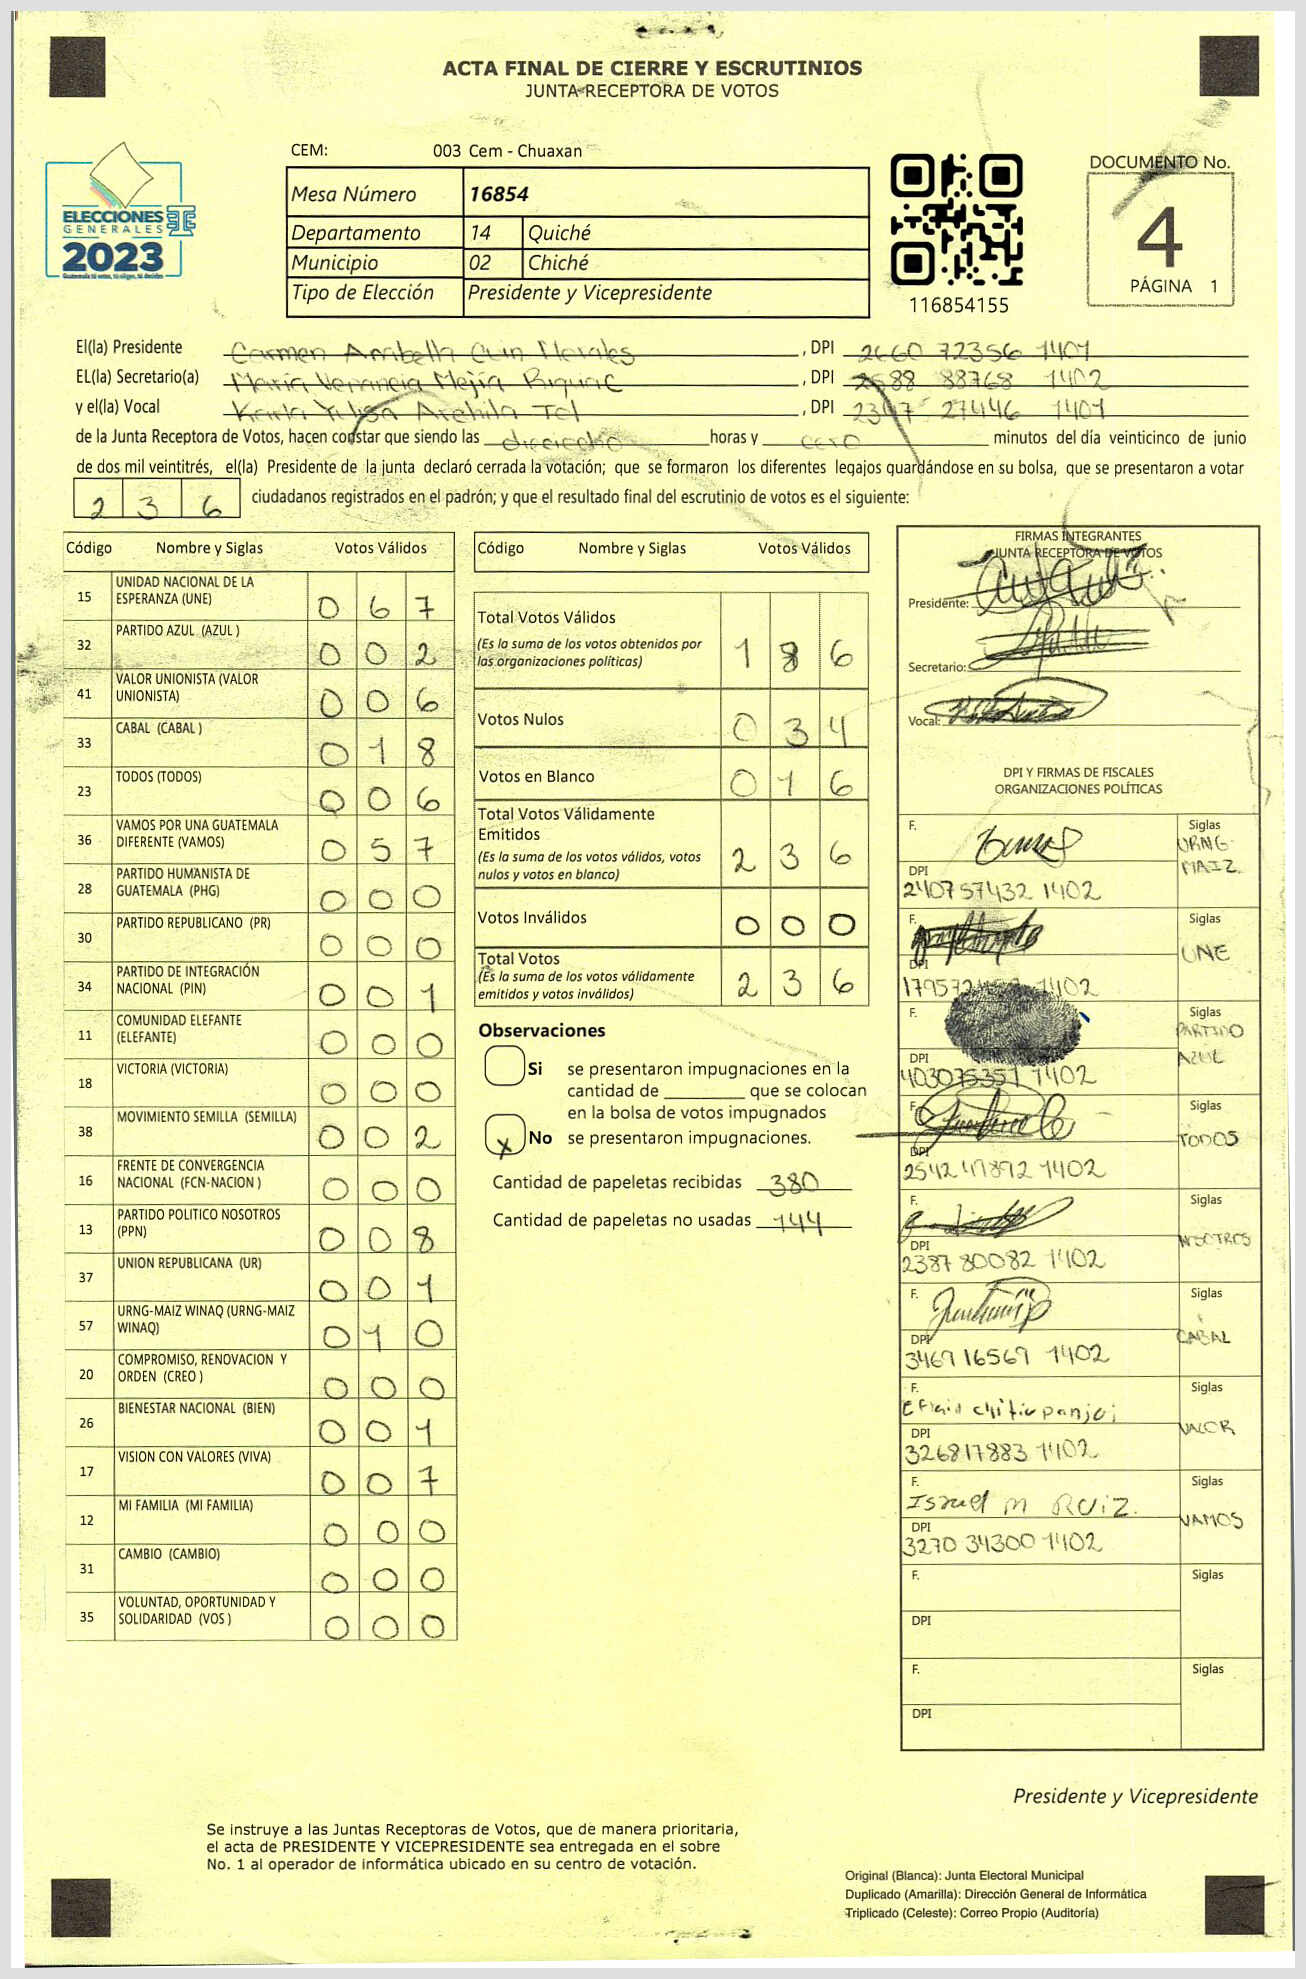 ACTA FINAL DE CIERRE Y ESCRUTINIOS
JUNTA RECEPTORA DE VOTOS
ELECCIONES
GENERALES
2023
CEM: 003 Cem - Chuaxan
Mesa Número 16854
Departamento 14 Quiché
Municipio 02 Chiché
Tipo de Elección Presidente y Vicepresidente
116854155
DOCUMENTO No.
4
PÁGINA 1
El(la) Presidente Carmen Morales, DPI 2660 72356 1401
EL(la) Secretario(a) Maria Mejía, DPI 88768 1402
y el(la) Vocal Karla Yulisa Archila Tol, DPI 27446 1401
de la Junta Receptora de Votos, hacen constar que siendo las dieciocho horas y cero minutos del día veinticinco de junio
de dos mil veintitrés, el(la) Presidente de la junta declaró cerrada la votación; que se formaron los diferentes legajos guardándose en su bolsa, que se presentaron a votar
2 3 6 ciudadanos registrados en el padrón; y que el resultado final del escrutinio de votos es el siguiente:
Código Nombre y Siglas Votos Válidos
15 UNIDAD NACIONAL DE LA ESPERANZA (UNE) 0 6 7
32 PARTIDO AZUL (AZUL ) 0 0 2
41 VALOR UNIONISTA (VALOR UNIONISTA) 0 0 6
33 CABAL (CABAL ) 0 1 8
23 TODOS (TODOS) 0 0 6
36 VAMOS POR UNA GUATEMALA DIFERENTE (VAMOS) 0 5 7
28 PARTIDO HUMANISTA DE GUATEMALA (PHG) 0 0 0
30 PARTIDO REPUBLICANO (PR) 0 0 0
34 PARTIDO DE INTEGRACIÓN NACIONAL (PIN) 0 0 1
11 COMUNIDAD ELEFANTE (ELEFANTE) 0 0 0
18 VICTORIA (VICTORIA) 0 0 0
38 MOVIMIENTO SEMILLA (SEMILLA) 0 0 2
16 FRENTE DE CONVERGENCIA NACIONAL (FCN-NACION ) 0 0 0
13 PARTIDO POLITICO NOSOTROS (PPN) 0 0 8
37 UNION REPUBLICANA (UR) 0 0 1
57 URNG-MAIZ WINAQ (URNG-MAIZ WINAQ) 0 1 0
20 COMPROMISO, RENOVACION Y ORDEN (CREO ) 0 0 0
26 BIENESTAR NACIONAL (BIEN) 0 0 1
17 VISION CON VALORES (VIVA) 0 0 7
12 MI FAMILIA (MI FAMILIA) 0 0 0
31 CAMBIO (CAMBIO) 0 0 0
35 VOLUNTAD, OPORTUNIDAD Y SOLIDARIDAD (VOS ) 0 0 0
Código Nombre y Siglas Votos Válidos
Total Votos Válidos 1 8 6
(Es la suma de los votos obtenidos por
las organizaciones políticas)
Votos Nulos 0 3 4
Votos en Blanco 0 1 6
Total Votos Válidamente
Emitidos 2 3 6
(Es la suma de los votos válidos, votos
nulos y votos en blanco)
Votos Inválidos 0 0 0
Total Votos 2 3 6
(Es la suma de los votos válidamente
emitidos y votos inválidos)
Observaciones
Si se presentaron impugnaciones en la
cantidad de ________ que se colocan
en la bolsa de votos impugnados
x No se presentaron impugnaciones.
Cantidad de papeletas recibidas 380
Cantidad de papeletas no usadas 144
FIRMAS INTEGRANTES
JUNTA RECEPTORA DE VOTOS
Presidente:
Secretario:
Vocal:
DPI Y FIRMAS DE FISCALES
ORGANIZACIONES POLÍTICAS
F. Siglas
URNG-
MAIZ.
DPI
2407 57432 1402
F. Siglas
UNE
DPI
1402
F. Siglas
PARTIDO
AZUL
DPI
403075351 1402
F. Siglas
TODOS
DPI
2542 47892 1402
F. Siglas
NOSOTROS
DPI
2387 80082 1402
F. Siglas
CABAL
DPI
3469 16569 1402
F. Siglas
VALOR
DPI
326817883 1402
F. Siglas
Israel M RUIZ.
VAMOS
DPI
3270 34300 1402
F. Siglas
DPI
F. Siglas
DPI
Presidente y Vicepresidente
Se instruye a las Juntas Receptoras de Votos, que de manera prioritaria,
el acta de PRESIDENTE Y VICEPRESIDENTE sea entregada en el sobre
No. 1 al operador de informática ubicado en su centro de votación.
Original (Blanca): Junta Electoral Municipal
Duplicado (Amarilla): Dirección General de Informática
Triplicado (Celeste): Correo Propio (Auditoría)